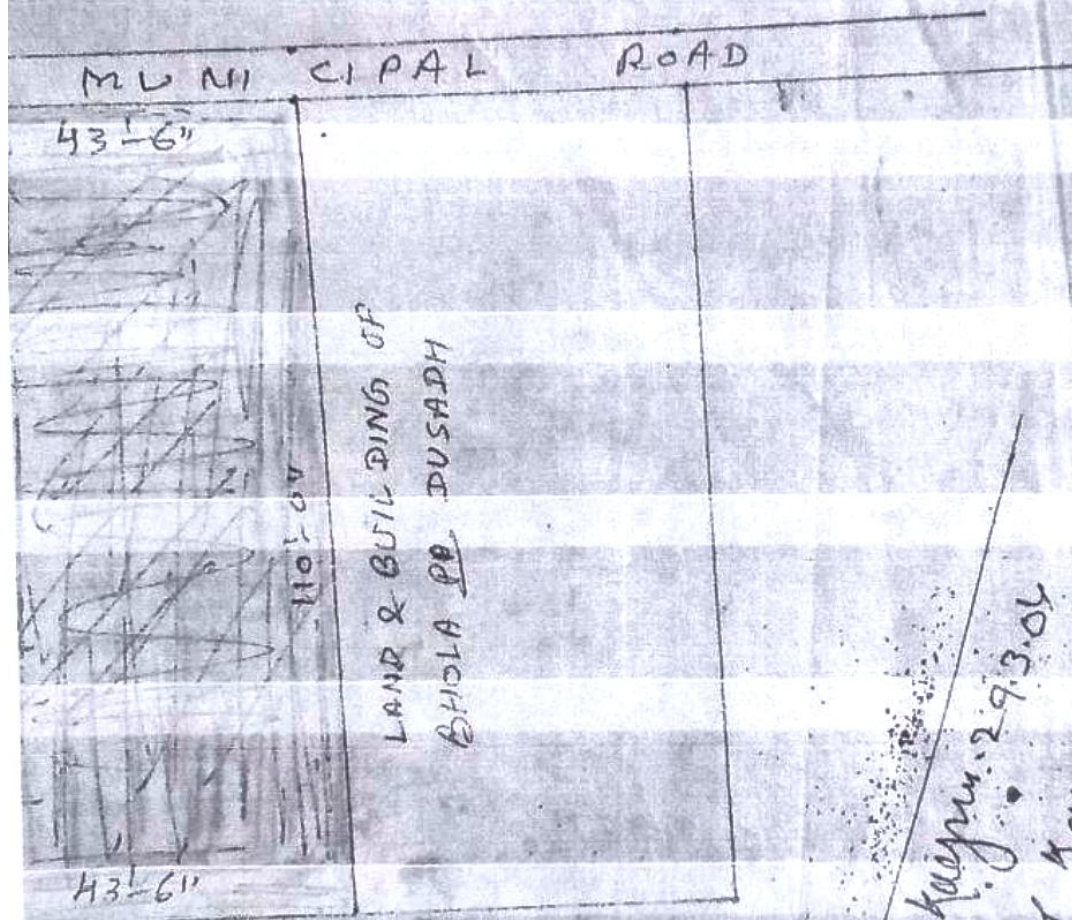 MUNICIPAL ROAD
43'-6"
110'-0"
LAND & BUILDING OF
BHOLA PD DUSADH
43'-6"
29.3.06